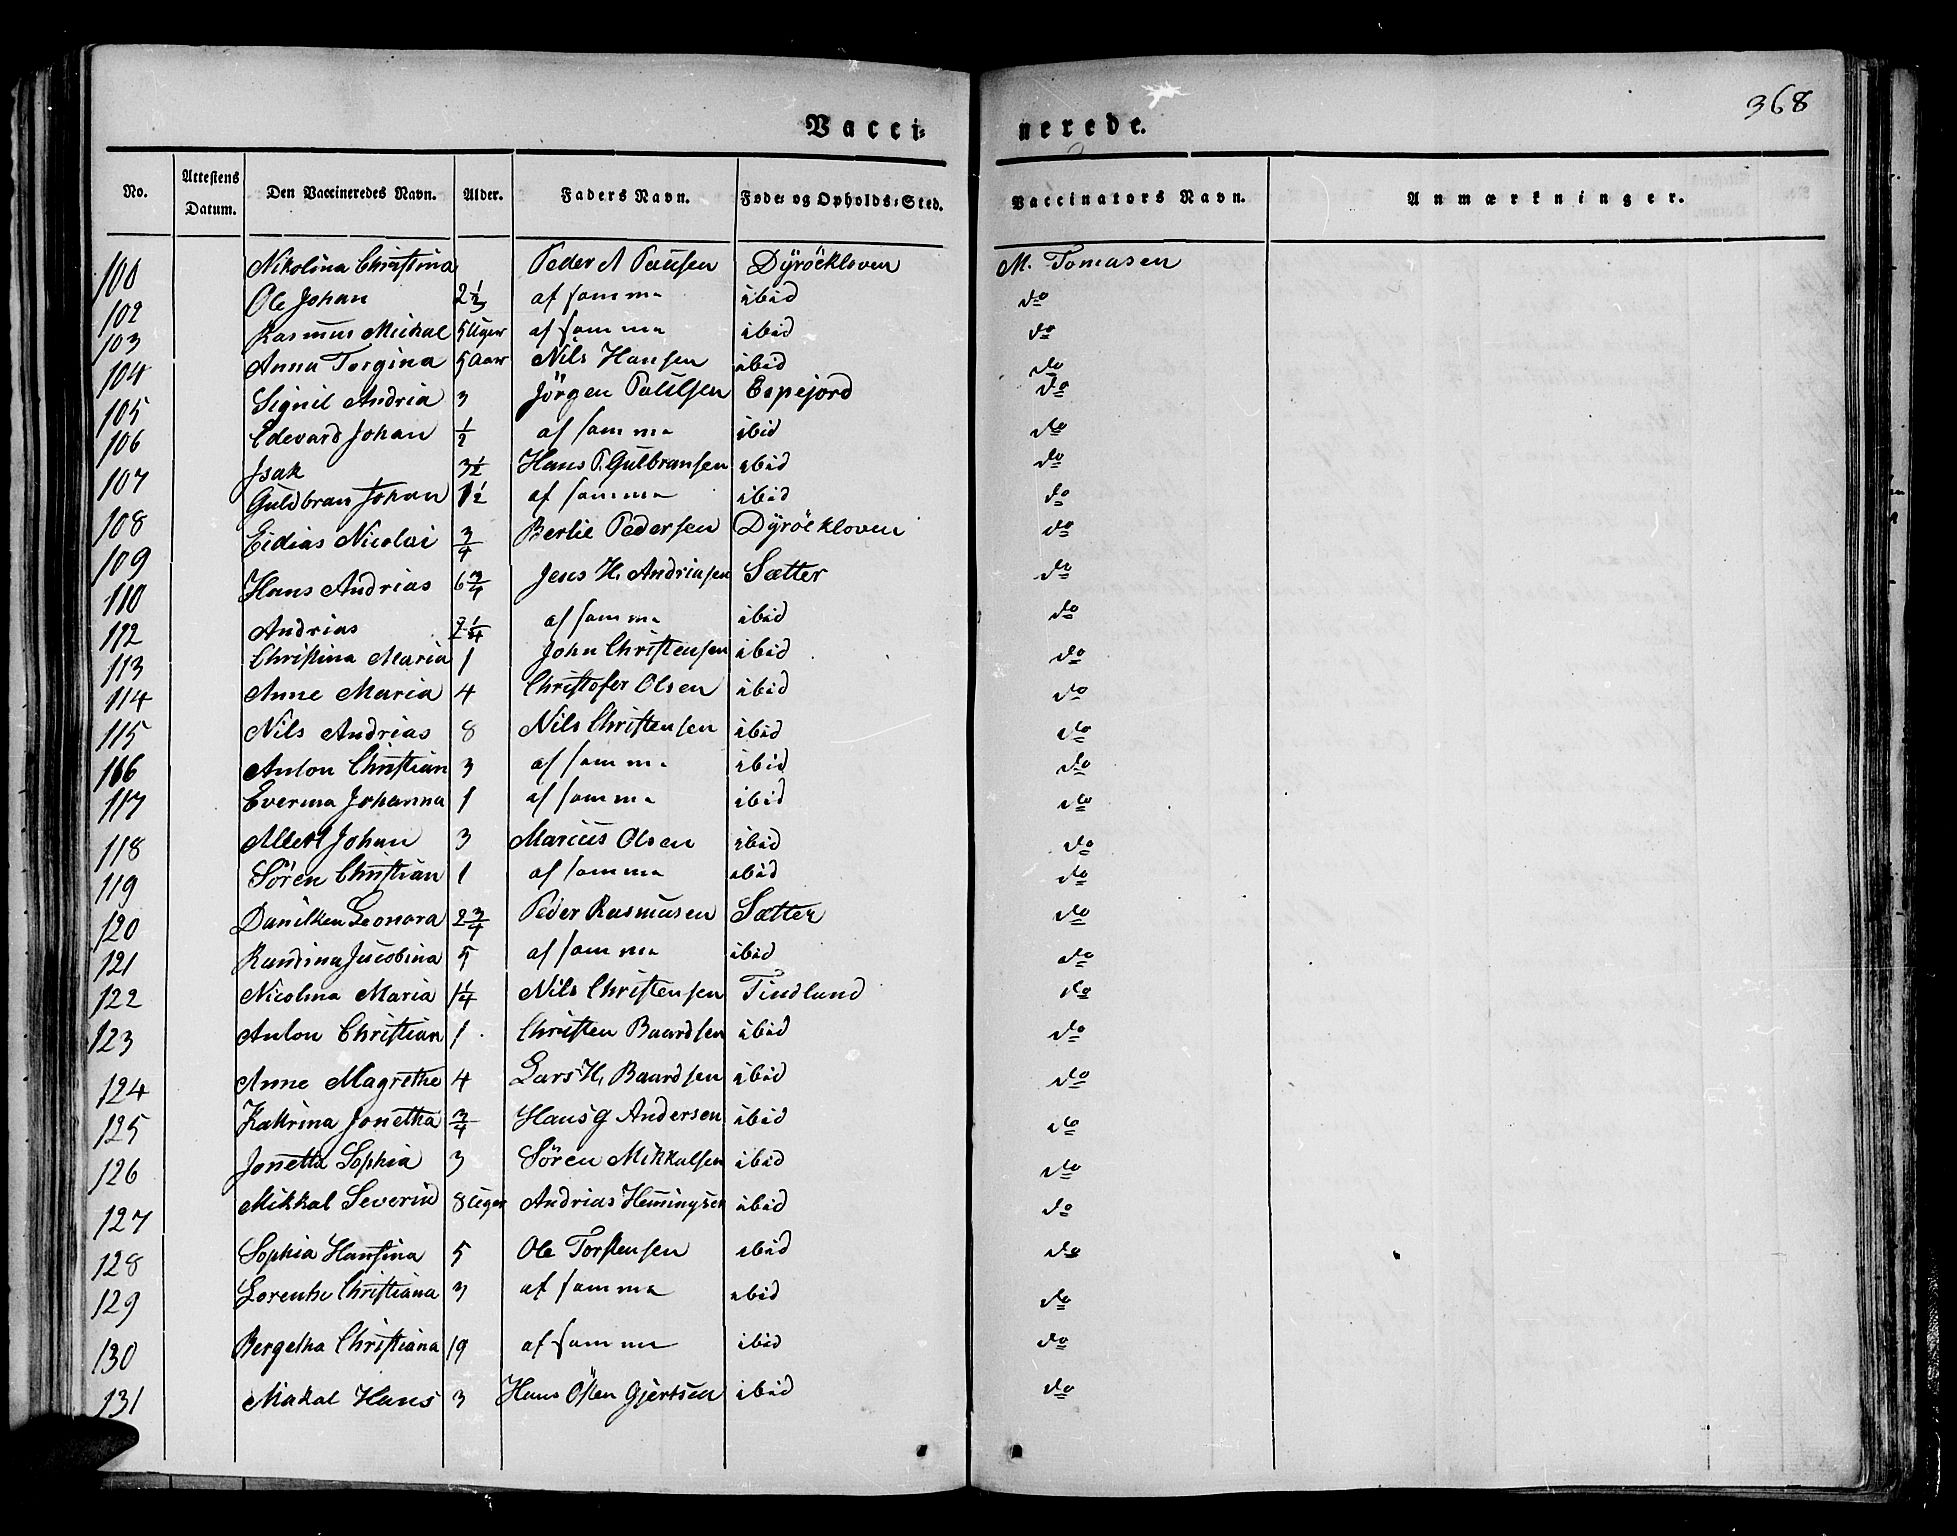 368
Vacci- nerede.
No. Attestens Datum. Den Vaccineredes Navn. Alder. Faders Navn. Føde- og Opholds-Sted. Vaccinators Navn. Anmærkninger.
101 Nikolina Christina Peder A Paulsen Dyröekloven M. Tomasen
102 Ole Johan 2½ af samma ibid do
103 Rasmus Mickal 5 Uger af samma ibid do
104 Anna Torgina 5 Aar Nils Hansen ibid do
105 Signil Andria 3 Jörgen Paulsen Espejord do
106 Edevard Johan ½ af samma ibid do
107 Isak 3½ Hans P. Gulbransen ibid do
108 Guldbran Johan 1½ af samma ibid do
109 Eidias Nicolai ¾ Bertie Pedersen Dyröekloven do
110 Hans Andrias 6¾ Jens H. Andriasen Sætter do
112 Andrias 2¼ af samma ibid do
113 Christina Maria 1 John Christensen ibid do
114 Anne Maria 4 Christofer Olsen ibid do
115 Nils Andrias 8 Nils Christensen ibid do
116 Anton Christian 3 af samma ibid do
117 Everina Johanna 1 af samma ibid do
118 Albert Johan 3 Marcus Olsen ibid do
119 Sören Christian 1 af samma ibid do
120 Danilken Leonora 2¾ Peder Rasmusen Sætter do
121 Randina Jacobina 5 af samma ibid do
122 Nicolina Maria 1¼ Nils Christensen Tindlund do
123 Anton Christian 1 Christen Baardsen ibid do
124 Anne Magrethe 4 Lars H. Baardsen ibid do
125 Katrina Jonetha ¾ Hans G Andersen ibid do
126 Jonetta Sophia 3 Sören Mikkalsen ibid do
127 Mikkal Severin 8 Uger Andrias Hemingsen ibid do
128 Sophia Hansina 5 Ole Torstensen ibid do
129 Lorentse Christiana 3 af samma ibid do
130 Bergetha Christiana 19 af samma ibid do
131 Mikal Hans 3 Hans Östen Gjertsen ibid do